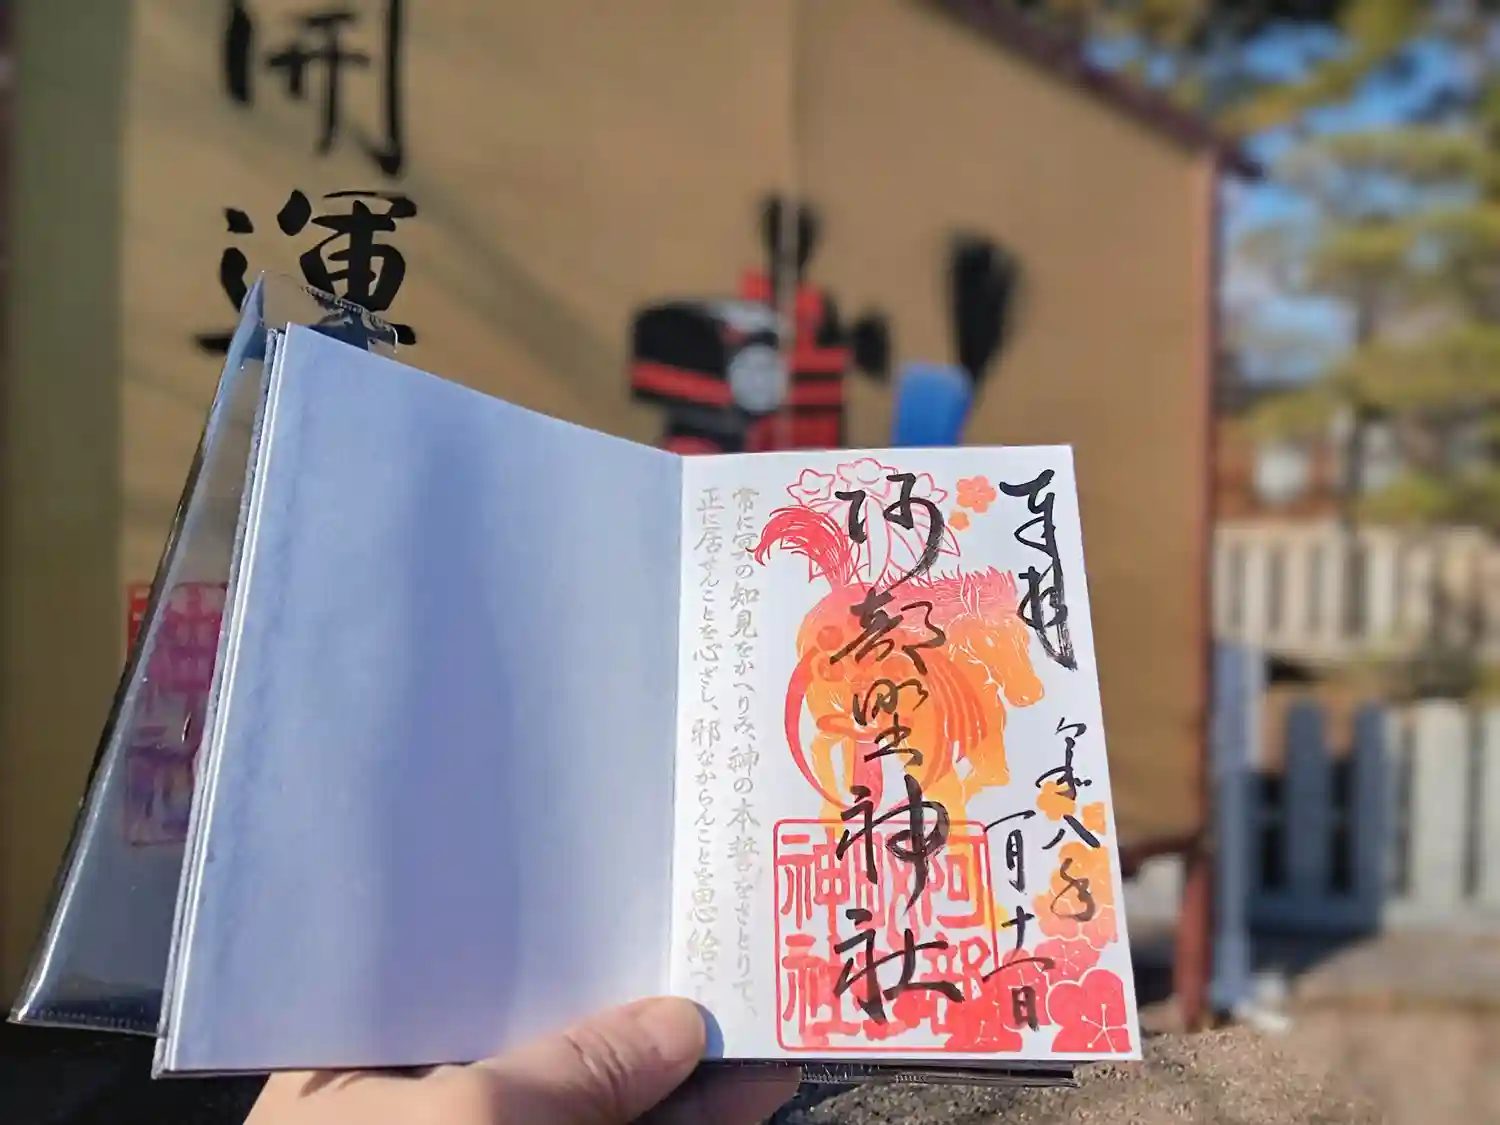 開運
奉拝
阿部野神社
令和八年
一月十一日
阿部野神社
常に冥の知見をかへりみ、神の本誓をさとりて、
正に居せんことを心ざし、邪なからんことを思給べ